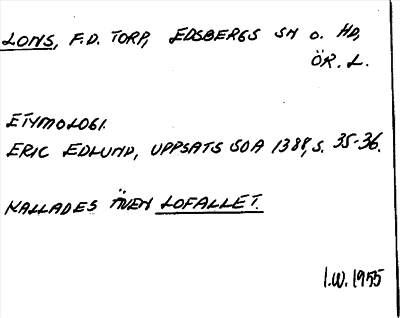 LONS, F.D. TORP, EDSBERGS SN O. HD,
ÖR. L.
ETYMOLOGI.
ERIC EDLUND, UPPSATS SOA 1388, S. 35-36.
KALLADES ÄVEN LOFALLET.
I.W. 1955